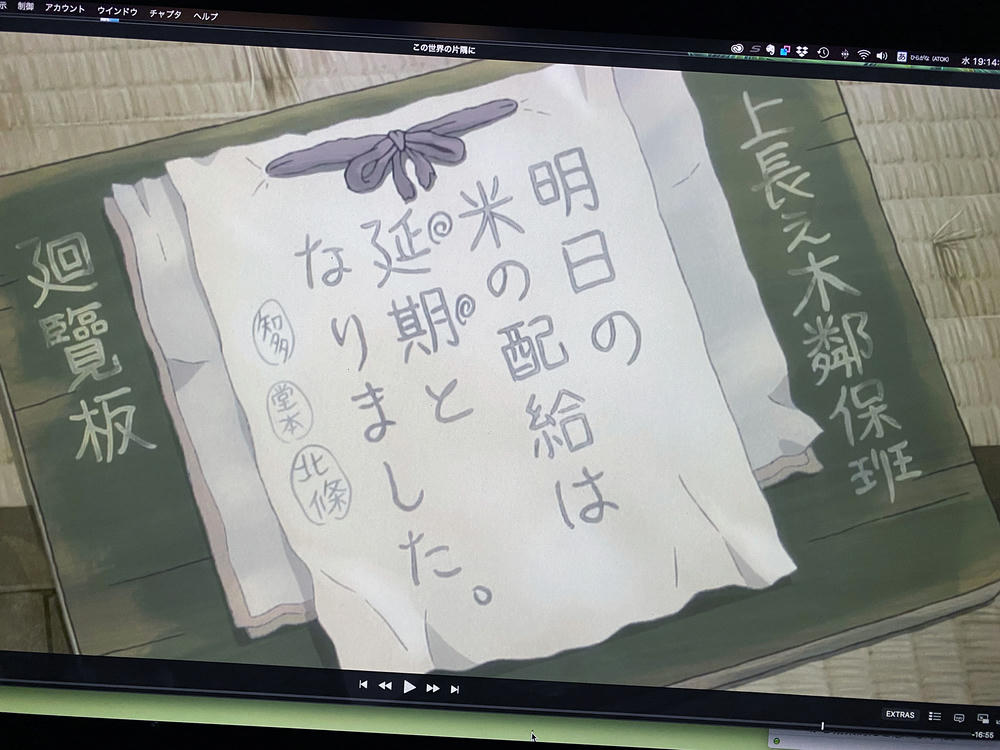 制御 アカウント ウインドウ チャプタ ヘルプ
この世界の片隅に
あ ひらがな (ATOK) 水 19:14
上長之木鄰保班
明日の
米の配給は
延期と
なりました。
知多 堂本 北條
廻覽板
EXTRAS
-16:55